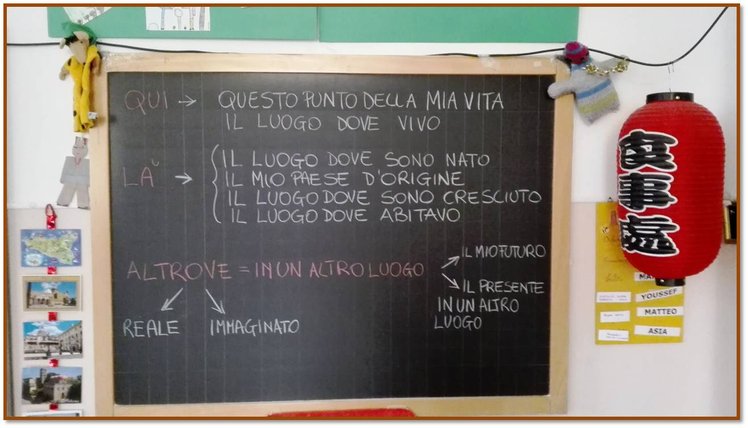 QUI → QUESTO PUNTO DELLA MIA VITA
IL LUOGO DOVE VIVO
LÀ → IL LUOGO DOVE SONO NATO
IL MIO PAESE D'ORIGINE
IL LUOGO DOVE SONO CRESCIUTO
IL LUOGO DOVE ABITAVO
ALTROVE = IN UN ALTRO LUOGO
IL MIO FUTURO
IL PRESENTE
IN UN ALTRO
LUOGO
REALE
IMMAGINATO
YOUSSEF
MATTEO
ASIA